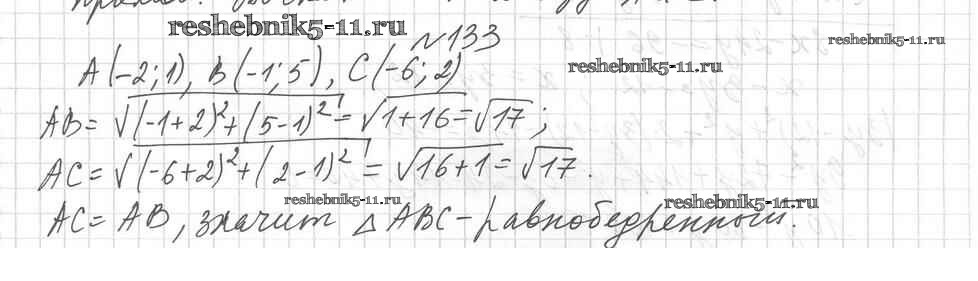 reshebnik5-11.ru
№133
reshebnik5-11.ru
A(-2;1), B(-1;5), C(-6;2)
reshebnik5-11.ru
AB=√((-1+2)²+(5-1)²)=√(1+16)=√17;
AC=√((-6+2)²+(2-1)²)=√(16+1)=√17.
reshebnik5-11.ru
reshebnik5-11.ru
AC=AB, значит △ABC-равнобедренный.